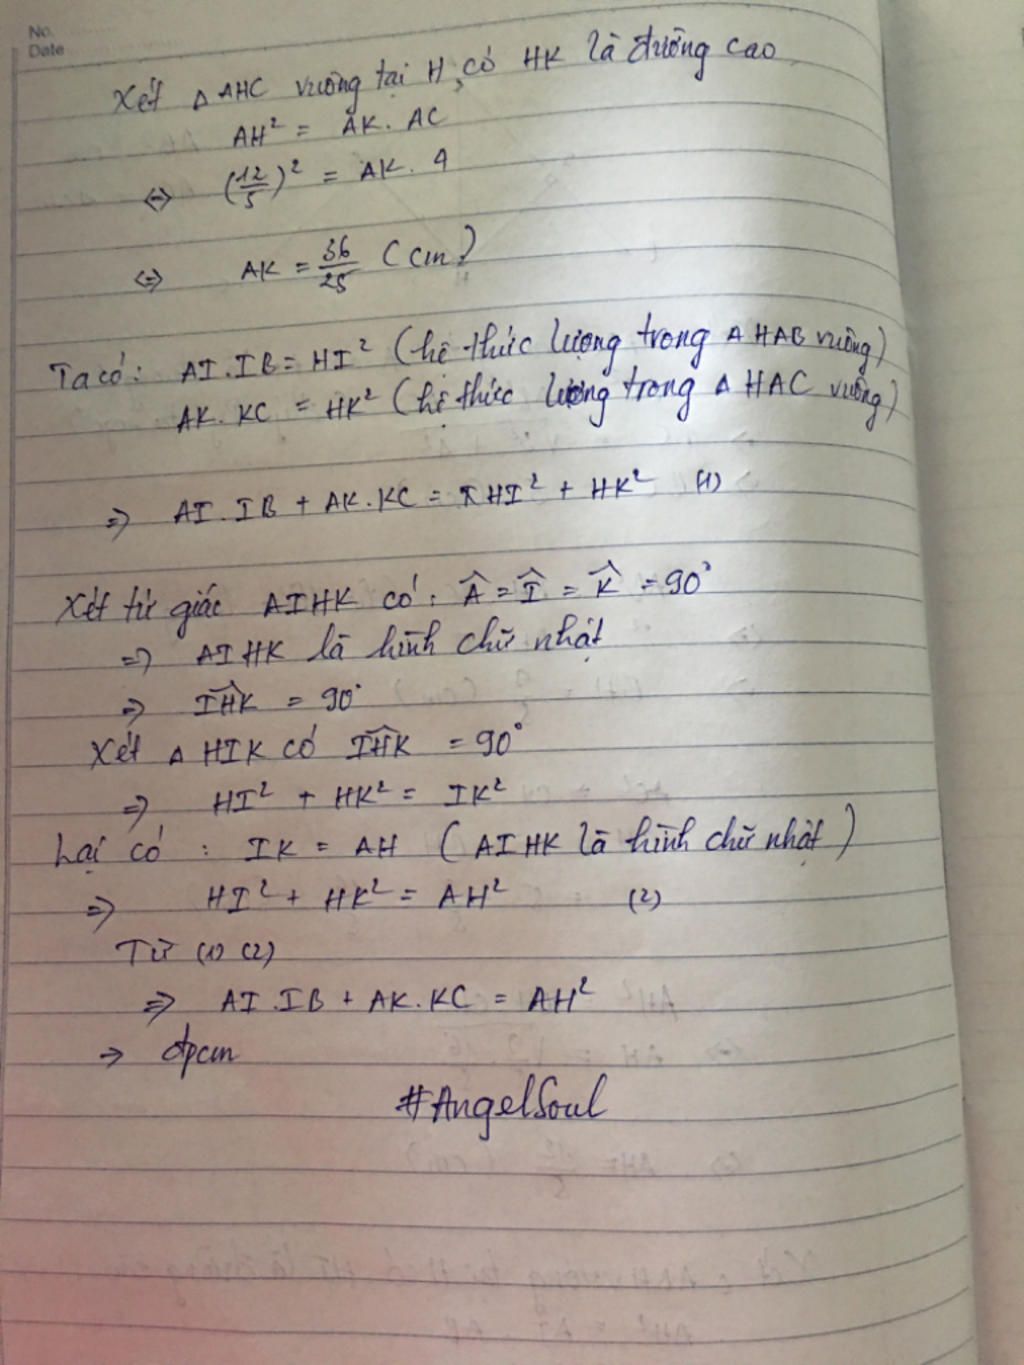 No.
Date
Xét △ AHC vuông tại H, có HK là đường cao
AH² = AK. AC
⇔ (12/5)² = AK. 4
⇔ AK = 36/25 (cm)
Ta có: AI.IB = HI² (hệ thức lượng trong △ HAB vuông)
AK. KC = HK² (hệ thức lượng trong △ HAC vuông)
⇒ AI.IB + AK.KC = HI² + HK² (1)
Xét tứ giác AIHK có: Â = Î = K̂ = 90°
⇒ AIHK là hình chữ nhật
⇒ IĤK = 90°
Xét △ HIK có IĤK = 90°
⇒ HI² + HK² = IK²
Lại có : IK = AH (AIHK là hình chữ nhật)
⇒ HI² + HK² = AH² (2)
Từ (1) (2)
⇒ AI.IB + AK.KC = AH²
→ đpcm
#AngelSoul